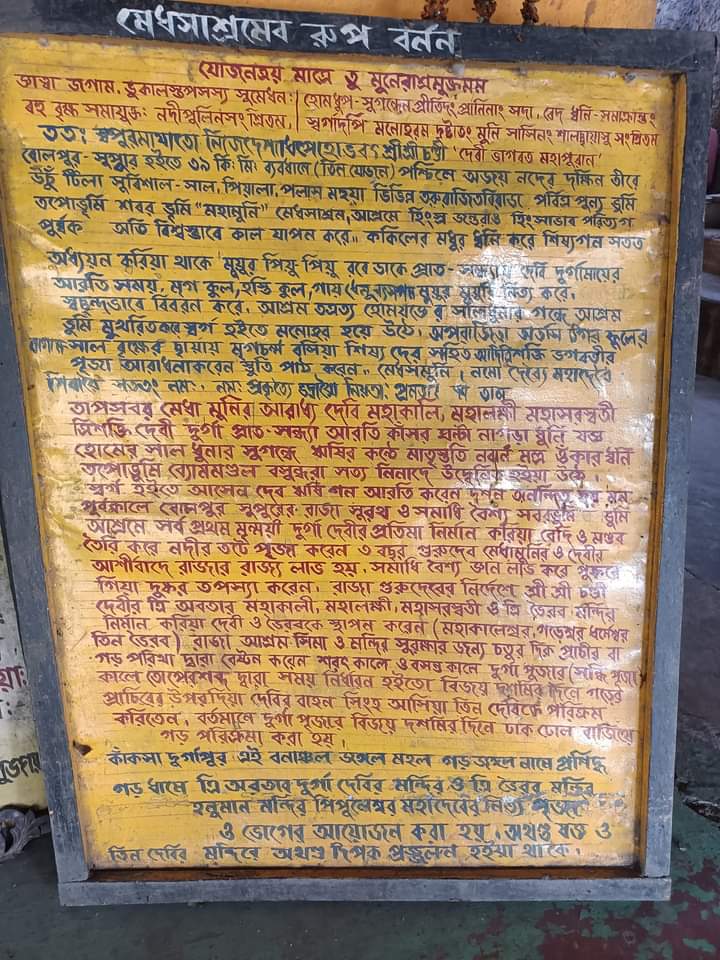 মেধসাশ্রমের রূপ বর্নন
যোজনত্রয় মাত্রে তু মুনেরাশ্রমমুত্তমম
জগাম. সুমেধন: হোমধূপ-সুগন্ধেন প্রীতিদং প্রানিনাং সদা, বেদ ধ্বনি-সমাক্রান্তং
বহু বৃক্ষ সমাযুক্তং নদীপুলিনসং স্বর্গাদপি মনোহরম মুনি
ততঃ শ্রীশ্রী চন্ডী 'দেবী ভাগবত মহাপুরান'
বোলপুর-সুপুর হইতে ৩৯ কি: মি: ব্যবধানে (তিন যোজন) পশ্চিমে অজয় নদের দক্ষিন তীরে
উঁচু টিলা সুবিশাল-সাল, পিয়ালা, পলাস মহুয়া বিভিন্ন তরুরাজিতবিরাজ পবিত্র পুন্য ভুমি
তপোভূমি শবর ভুমি "মহামুনি" মেধসাশ্রম, আশ্রমে হিংস্র জন্তুরাও হিংসাভাব পরিত্যাগ
পুর্বক অতি বিশ্বস্তভাবে কাল যাপন করে।। ককিলের মধুর ধ্বনি করে শিষ্যগন সতত
অধ্যয়ন করিয়া থাকে মুয়ুর পিয়ু পিয়ু রবে ডাকে প্রাত-সন্ধ্যায় দেবি দুর্গামায়ের
আরতি সময়, মৃগ কুল, হস্তি কুল, গায় মুয়ুর মুয়ুরি নিত্য করে,
স্বছন্দভাবে বিবরন করে. আশ্রম হোমযজ্ঞের সালধুনার গন্ধে আশ্রম
ভুমি মুখরিত করে স্বর্গ হইতে মনোহর হয়ে উঠে. অপরাজিতা অতসি টগর ফুলের
সাল বৃক্ষের ছায়ায় মৃগচর্ম বসিয়া শিষ্য দের সহিত আদিশক্তি ভগবতীর
পুজা আরাধনা করেন স্তুতি পাঠ করেন।। মেধসমুনি। নমো দেব্যৈ মহাদেব্যৈ
শিবায়ৈ সততং নমঃ. নমঃ প্রকৃত্যৈ ভদ্রায়ৈ নিয়তাঃ প্রনতাঃ স্ম তাম
তাপসপ্রবর মেধা মুনির আরাধ্য দেবি মহাকালি, মহালক্ষ্মী মহাসরস্বতী
ত্রিশক্তি, দেবী দুর্গা প্রাত-সন্ধ্যা আরতি কাঁসর ঘন্টা নাগড়া ধ্বনি যজ্ঞ
হোমের সাল ধুনার সুগন্ধে ঋষির কন্ঠে মাতৃস্তুতি মন্ত্র ওঁকার ধ্বনি
তপোভুমি ব্যোমমণ্ডল বসুন্ধরা সত্য নিনাদে উদ্বেলিত হইয়া উঠে.
স্বর্গ হইতে আসেন দেব ঋষি গন আরতি করেন দর্শন আনন্দিত হয় মন
পূর্বকালে বোলপুর সুপুরের রাজা সুরথ ও সমাধি বৈশ্য ভুমি
আশ্রমে সর্ব প্রথম মৃন্ময়ী দুর্গা দেবীর প্রতিমা নির্মান করিয়া বেদি ও মণ্ডব
তৈরি করে নদীর তটে পূজা করেন ৩ বছর গুরুদেব মেধামুনির ও দেবীর
আশীর্বাদে রাজার রাজ্য লাভ হয়. সমাধি বৈশ্য জ্ঞান লাভ করে পুষ্করে
গিয়া দুষ্কর তপস্যা করেন. রাজা গুরুদেবের নির্দেশে শ্রী শ্রী চন্ডী
দেবীর ত্রি অবতার মহাকালী, মহালক্ষ্মী, মহাসরস্বতী ও ত্রি ভৈরব মন্দির
নির্মান করিয়া দেবী ও ভৈরবকে স্থাপন করেন (মহাকালেশ্বর, গড়েশ্বর ধর্মেশ্বর
তিন ভৈরব) রাজা আশ্রম সিমা ও মন্দির সুরক্ষার জন্য চতুর দিক প্রাচীর বা
গড় পরিখা দ্বারা বেষ্টন করেন শরৎ কালে ও বসন্ত কালে দুর্গা পুজার (সন্ধি পুজা)
কালে তোপেরশব্দ দ্বারা সময় নির্ধারন হইতো বিজয় দশমির দিনে গড়ের
প্রাচিরের উপরদিয়া দেবির বাহন সিংহ আসিয়া তিন দেবিকে পরিক্রম
করিতেন. বর্তমানে দুর্গা পূজার বিজয় দশমির দিনে ঢাক ঢোল বাজিয়ে
গড় পরিক্রমা করা হয়।
কাঁকসা দুর্গাপুর এই বনাঞ্চল জঙ্গল মহল গড়জঙ্গল নামে প্রসিদ্ধ
গড় ধামে ত্রি অবতার দুর্গা দেবির মন্দির ও ত্রি ভৈরব মন্দির
হনুমান মন্দির পিপুলেশ্বর মহাদেবের নিত্য পূজা
ও ভোগের আয়োজন করা হয়. অখণ্ড যজ্ঞ ও
তিন দেবির মন্দিরে অখণ্ড দিপক প্রজ্বলন হইয়া থাকে.